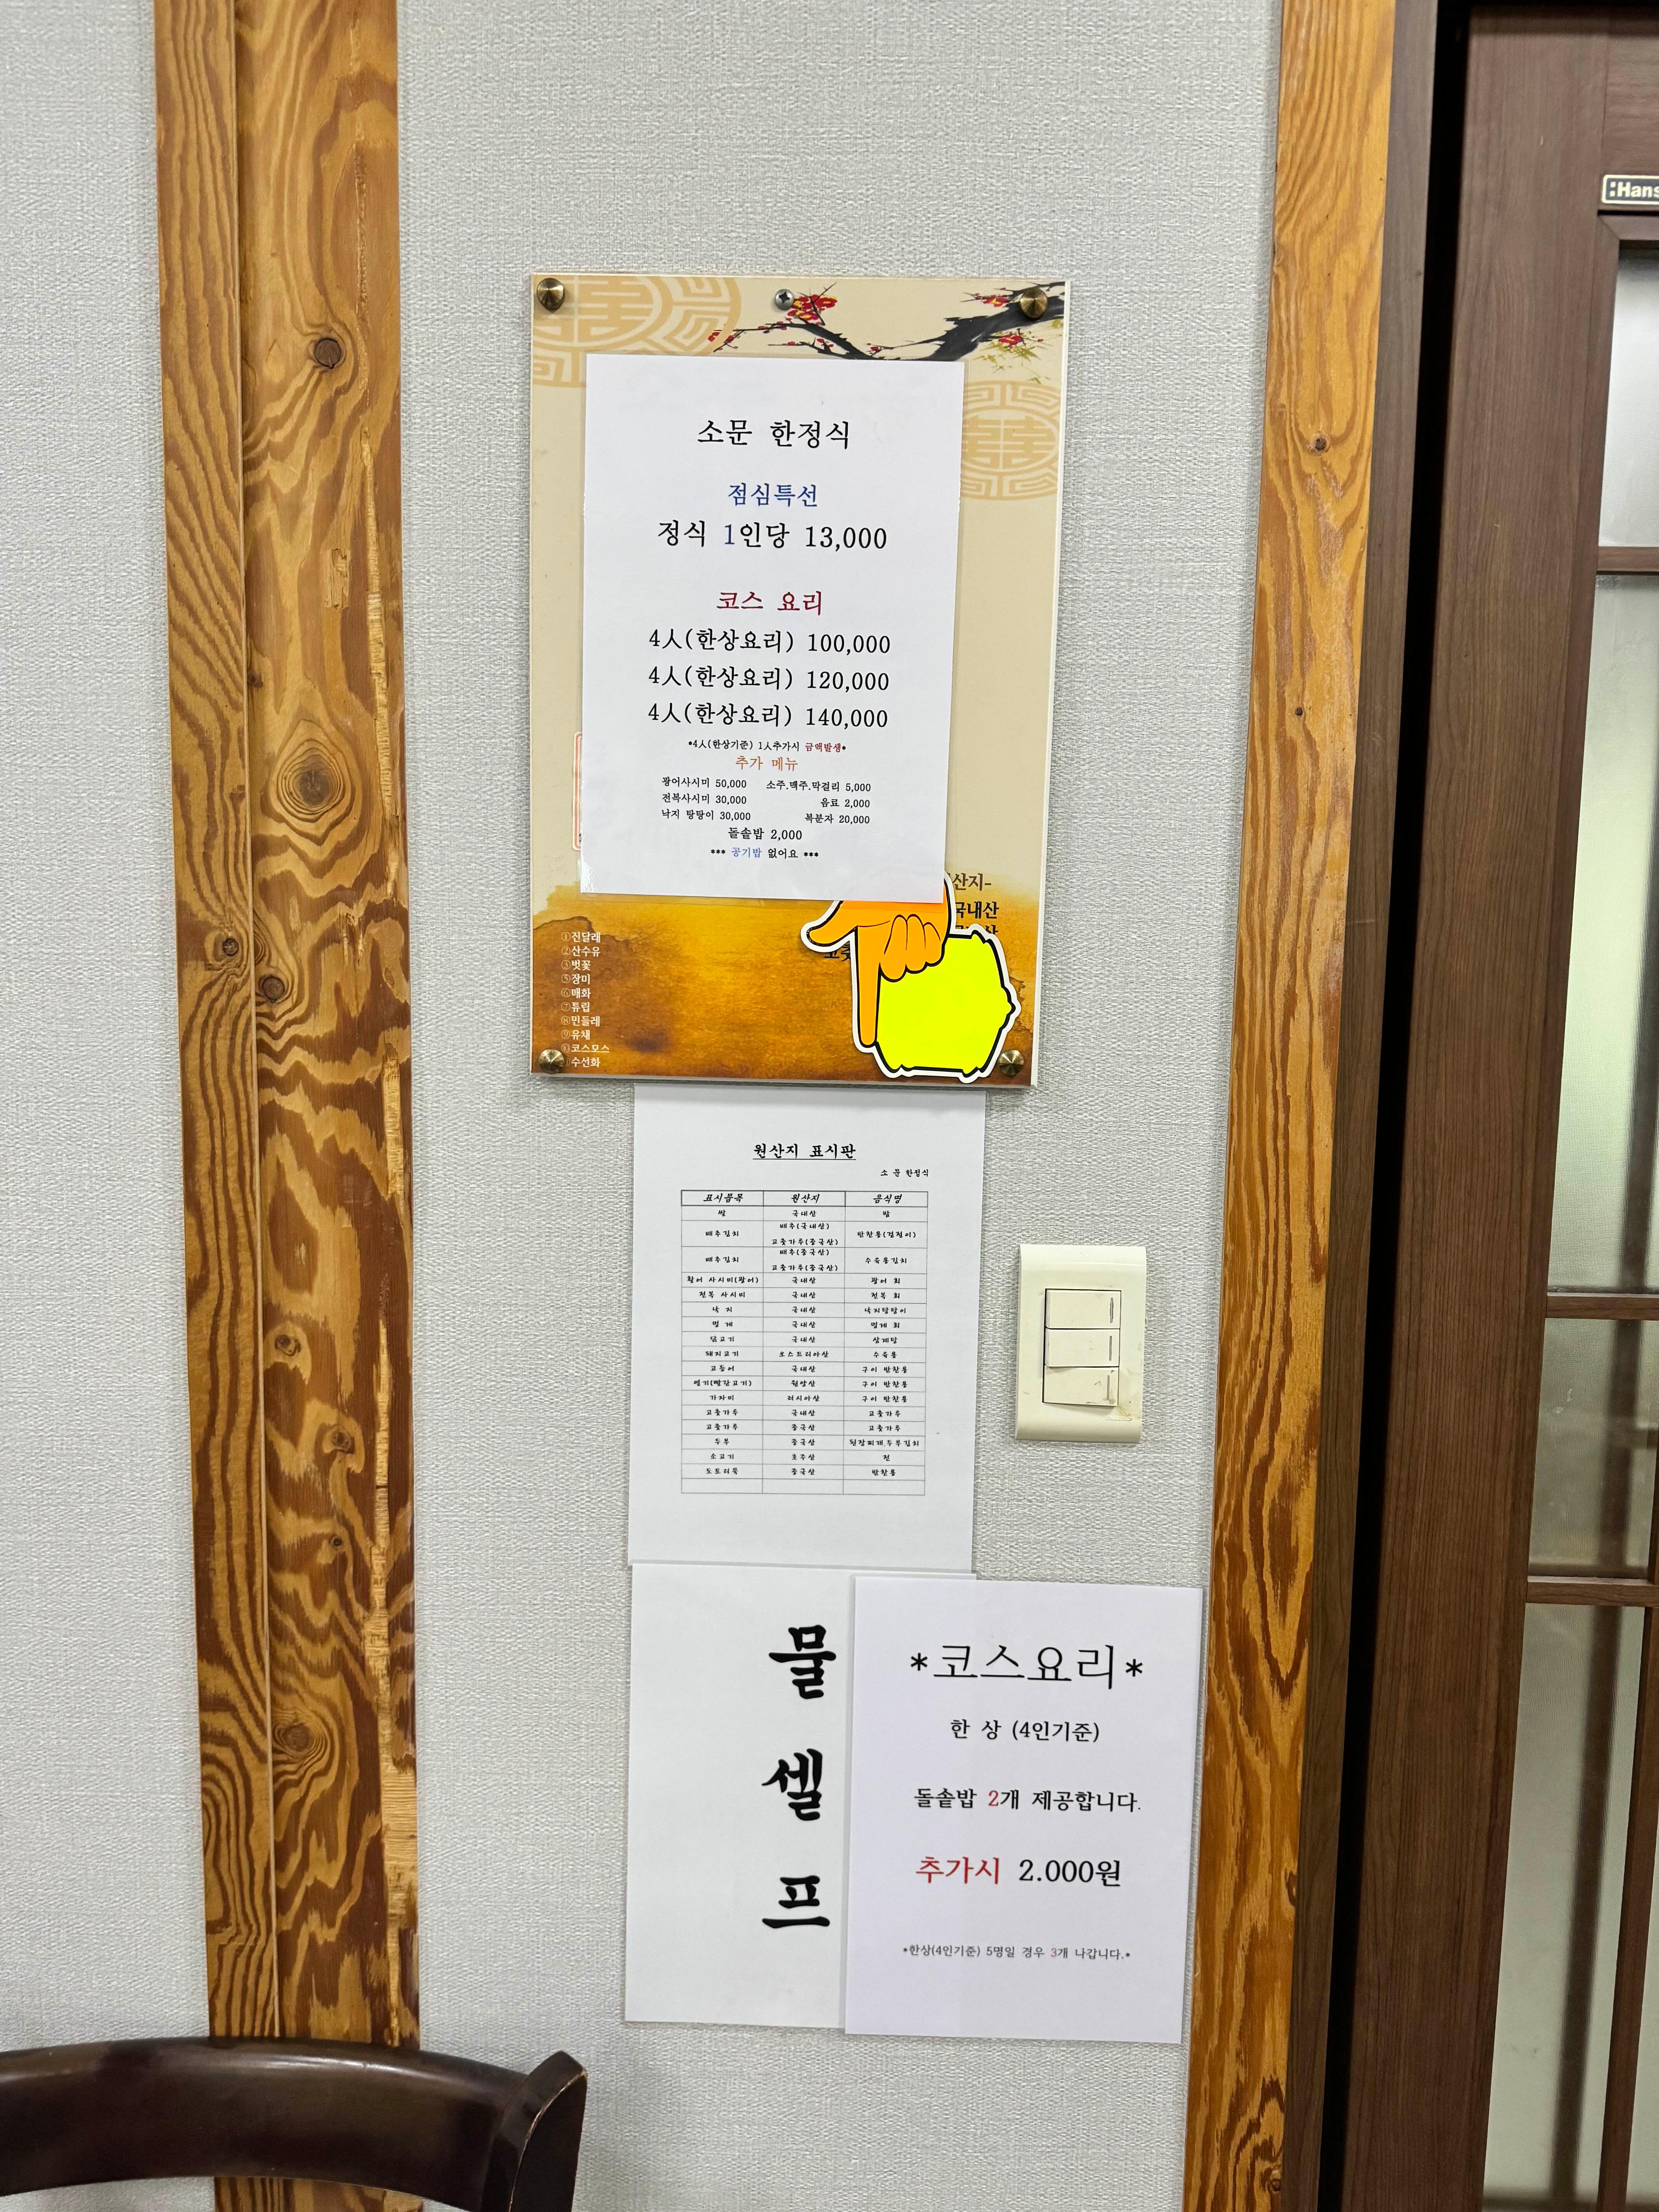 :Hans
소문 한정식
점심특선
정식 1인당 13,000
코스 요리
4人(한상요리) 100,000
4人(한상요리) 120,000
4人(한상요리) 140,000
*4人(한상기준) 1人추가시 금액발생*
추가 메뉴
광어사시미 50,000 소주.맥주.막걸리 5,000
전복사시미 30,000 음료 2,000
낙지 탕탕이 30,000 복분자 20,000
돌솥밥 2,000
*** 공기밥 없어요 ***
산지-
국내산
①진달래
②산수유
③벗꽃
⑤장미
⑥매화
⑦튜립
⑧민들레
⑨유채
⑩코스모스
수선화
원산지 표시판
소 문 한정식
표시품목 원산지 음식명
쌀 국내산 밥
배추김치 배추(국내산) 고춧가루(중국산) 반찬용(겉절이)
배추김치 배추(중국산) 고춧가루(중국산) 수육용김치
활어 사시미(광어) 국내산 광어 회
전복 사시미 국내산 전복 회
낙 지 국내산 낙지탕탕이
멍 게 국내산 멍게 회
닭고기 국내산 삼계탕
돼지고기 오스트리아산 수육용
고등어 국내산 구이 반찬용
열기(빨간고기) 원양산 구이 반찬용
가자미 러시아산 구이 반찬용
고춧가루 국내산 고춧가루
고춧가루 중국산 고춧가루
두부 중국산 된장찌개,두부김치
소고기 호주산 전
도토리묵 중국산 반찬용
물
셀
프
*코스요리*
한 상 (4인기준)
돌솥밥 2개 제공합니다.
추가시 2.000원
*한상(4인기준) 5명일 경우 3개 나갑니다.*